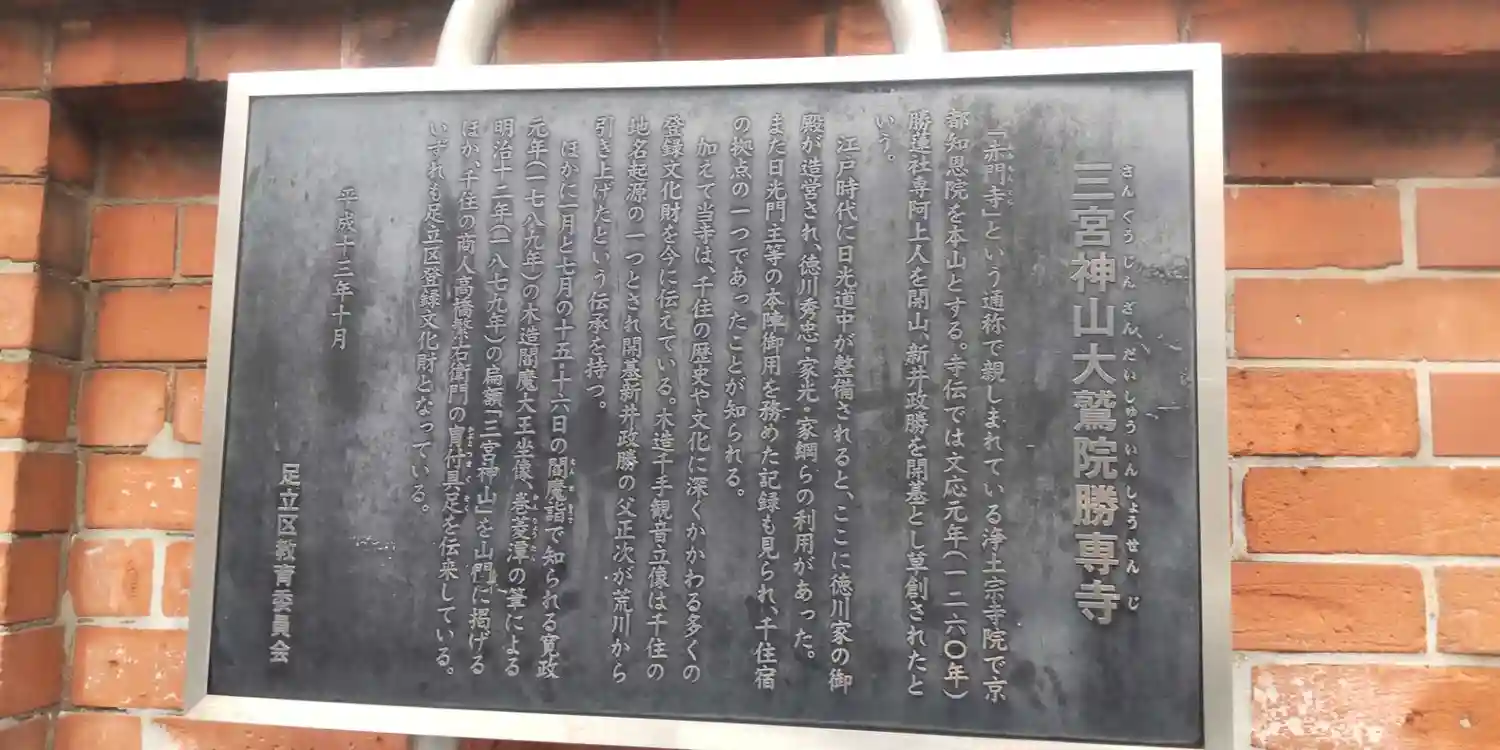 さんぐうじんざんだいしゅういんしょうせんじ
三宮神山大鷲院勝専寺
「赤門寺」という通称で親しまれている浄土宗寺院で京
都知恩院を本山とする。寺伝では文応元年(一二六〇年)
勝蓮社専阿上人を開山、新井政勝を開基とし草創されたと
いう。
江戸時代に日光道中が整備されると、ここに徳川家の御
殿が造営され、徳川秀忠・家光・家綱らの利用があった。
また日光門主等の本陣御用を務めた記録も見られ、千住宿
の拠点の一つであったことが知られる。
加えて当寺は、千住の歴史や文化に深くかかわる多くの
登録文化財を今に伝えている。木造千手観音立像は千住の
地名起源の一つとされ開基新井政勝の父正次が荒川から
引き上げたという伝承を持つ。
ほかに一月と七月の十五・十六日の閻魔詣で知られる寛政
元年(一七八九年)の木造閻魔大王坐像、巻菱潭の筆による
明治十二年(一八七九年)の扁額「三宮神山」を山門に掲げる
ほか、千住の商人高橋繁右衛門の冑付具足を伝来している。
いずれも足立区登録文化財となっている。
平成十三年十月
足立区教育委員会